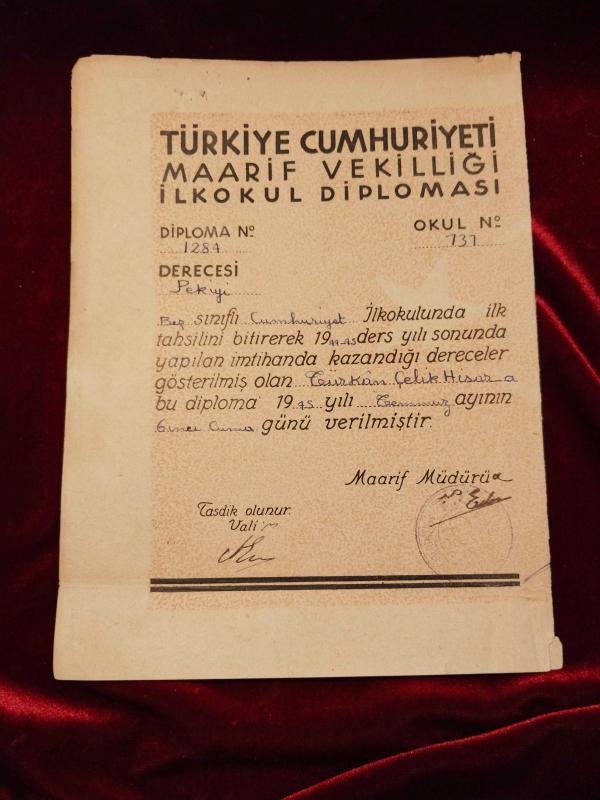 TÜRKİYE CUMHURİYETİ
MAARİF VEKİLLİĞİ
İLKOKUL DİPLOMASI
DİPLOMA Nº
1284
OKUL Nº
737
DERECESİ
Pekiyi
Beş sınıflı Cumhuriyet İlkokulunda ilk
tahsilini bitirerek 1944-45 ders yılı sonunda
yapılan imtihanda kazandığı dereceler
gösterilmiş olan Türkân Çelik Hisar a
bu diploma 1945 yılı Temmuz ayının
6ıncı Cuma günü verilmiştir.
Maarif Müdürü
Tasdik olunur.
Vali